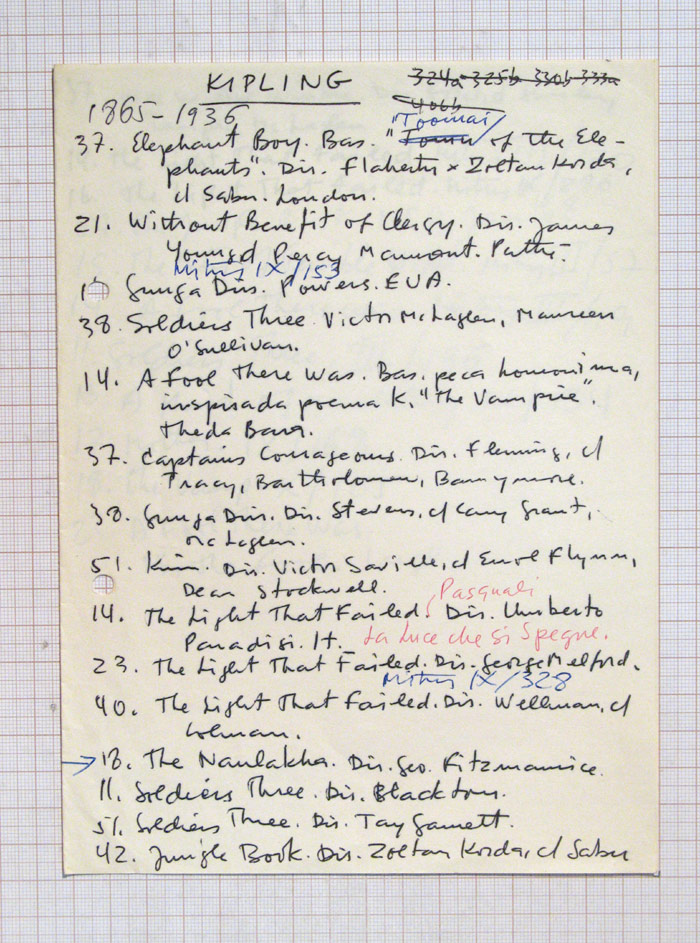 KIPLING
324a 325b 330b 333a
406b
1865-1936
"Toomai
37. Elephant Boy. Bas. " of the Ele-
phants". Dir. Flaherty x Zoltan Korda,
c/ Sabu. London.
21. Without Benefit of Clergy. Dir. James
Young c/ Percy Marmont. Pathé.
IX/153
Gunga Din. Powers. EUA.
38. Soldiers Three. Victor McLaglen, Maureen
O'Sullivan.
14. A Fool There Was. Bas. peca homonima,
inspirada poema K. "The Vampire".
Theda Bara.
37. Captains Courageous. Dir. Fleming, c/
Tracy, Bartholomew, Barrymore.
38. Gunga Din. Dir. Stevens, c/ Cary Grant,
McLaglen.
51. Kim. Dir. Victor Saville, c/ Errol Flynn,
Dean Stockwell.
Pasquali
14. The Light That Failed. Dir. Umberto
Paradisi. It. La Luce che si Spegne.
23. The Light That Failed. Dir. George Melford.
IX/328
40. The Light That Failed. Dir. Wellman, c/
Colman.
→ 18. The Naulahka. Dir. Geo. Fitzmaurice.
11. Soldiers Three. Dir. Blackton.
51. Soldiers Three. Dir. Tay Garnett.
42. Jungle Book. Dir. Zoltan Korda, c/ Sabu